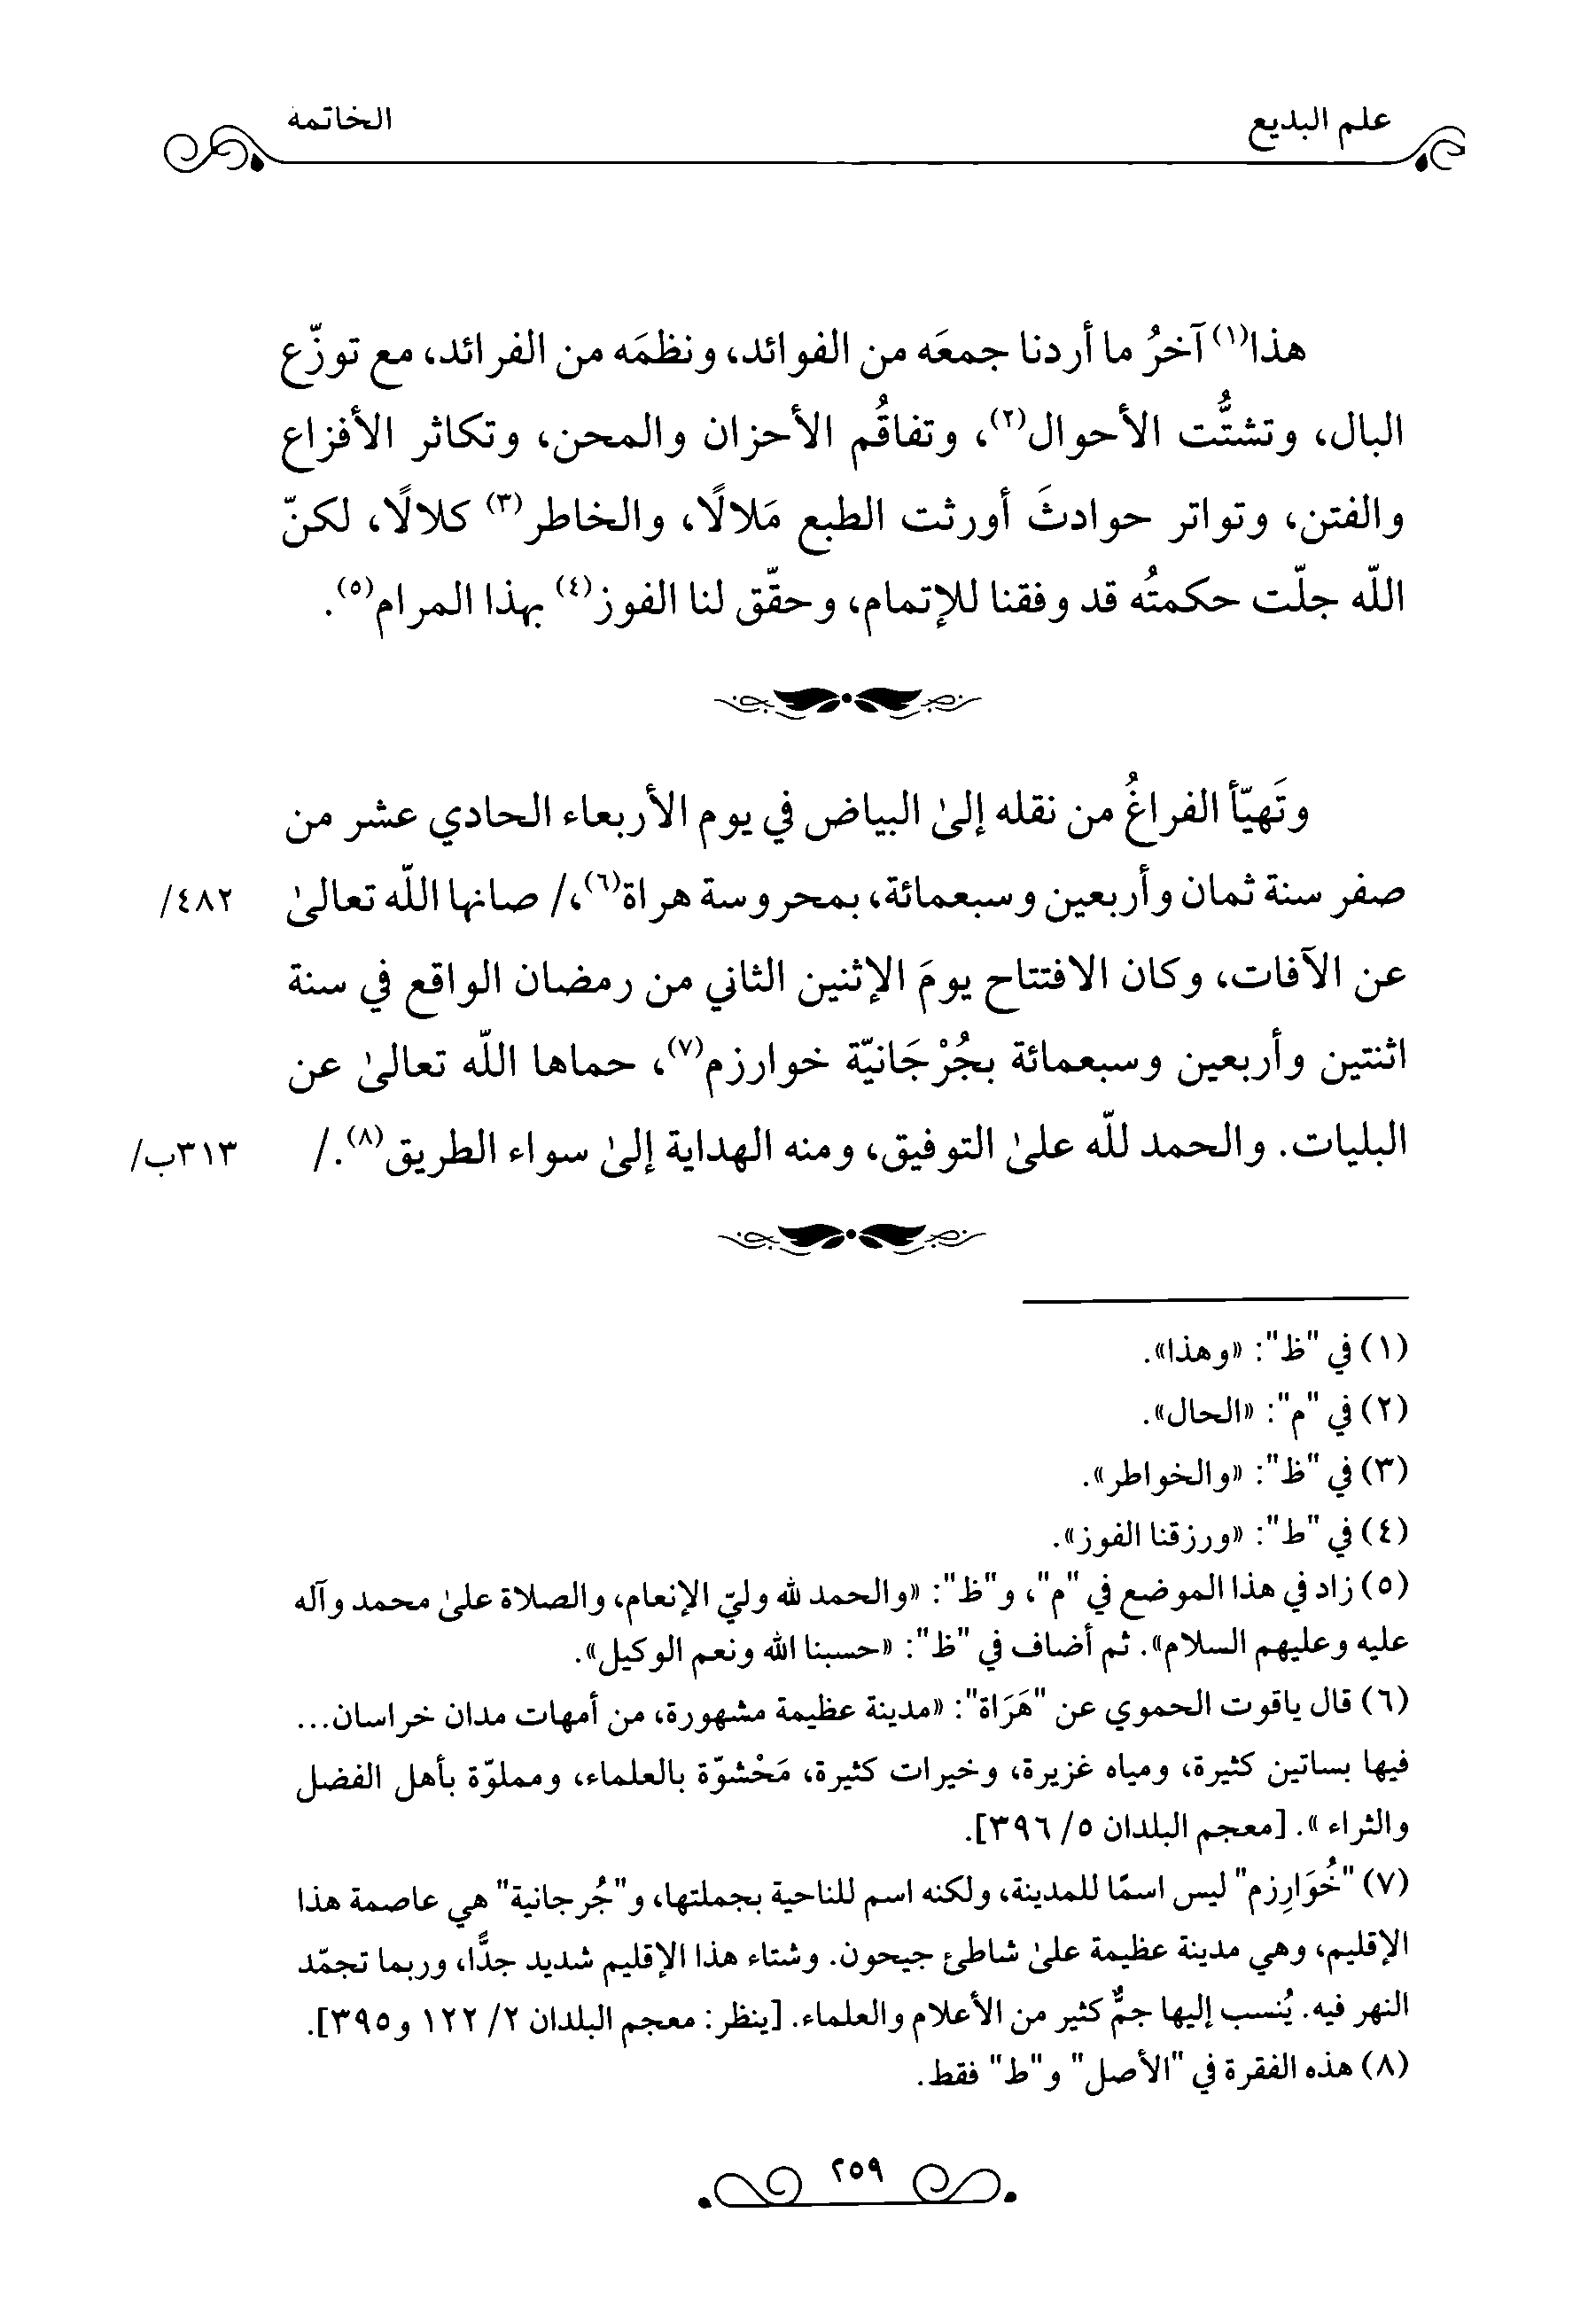 علم البديع
الخاتمة
هذا(١) آخرُ ما أردنا جمعَه من الفوائد، ونظمَه من الفرائد، مع توزّع
البال، وتشتُّت الأحوال(٢)، وتفاقُم الأحزان والمحن، وتكاثر الأفزاع
والفتن، وتواتر حوادثَ أورثت الطبع مَلالًا، والخاطر(٣) كلالًا، لكنّ
اللّه جلّت حكمتُه قد وفقنا للإتمام، وحقّق لنا الفوز(٤) بهذا المرام(٥).
وتَهيّأ الفراغُ من نقله إلىٰ البياض في يوم الأربعاء الحادي عشر من
صفر سنة ثمان وأربعين وسبعمائة، بمحروسة هراة(٦)،/ صانها اللّه تعالىٰ /٤٨٢
عن الآفات، وكان الافتتاح يومَ الإثنين الثاني من رمضان الواقع في سنة
اثنتين وأربعين وسبعمائة بجُرْجَانيّة خوارزم(٧)، حماها اللّه تعالىٰ عن
البليات. والحمد للّه علىٰ التوفيق، ومنه الهداية إلىٰ سواء الطريق(٨)./ ٣١٣ب/
(١) في "ظ": «وهذا».
(٢) في "م": «الحال».
(٣) في "ظ": «والخواطر».
(٤) في "ط": «ورزقنا الفوز».
(٥) زاد في هذا الموضع في "م"، و"ظ": «والحمد لله وليّ الإنعام، والصلاة علىٰ محمد وآله
عليه وعليهم السلام». ثم أضاف في "ظ": «حسبنا الله ونعم الوكيل».
(٦) قال ياقوت الحموي عن "هَرَاة": «مدينة عظيمة مشهورة، من أمهات مدان خراسان...
فيها بساتين كثيرة، ومياه غزيرة، وخيرات كثيرة، مَحْشوّة بالعلماء، ومملوّة بأهل الفضل
والثراء ». [معجم البلدان ٥/ ٣٩٦].
(٧) "خُوَارِزم" ليس اسمًا للمدينة، ولكنه اسم للناحية بجملتها، و"جُرجانية" هي عاصمة هذا
الإقليم، وهي مدينة عظيمة علىٰ شاطئ جيحون. وشتاء هذا الإقليم شديد جدًّا، وربما تجمّد
النهر فيه. يُنسب إليها جمٌّ كثير من الأعلام والعلماء. [ينظر: معجم البلدان ٢/ ١٢٢ و٣٩٥].
(٨) هذه الفقرة في "الأصل" و"ط" فقط.
٢٥٩